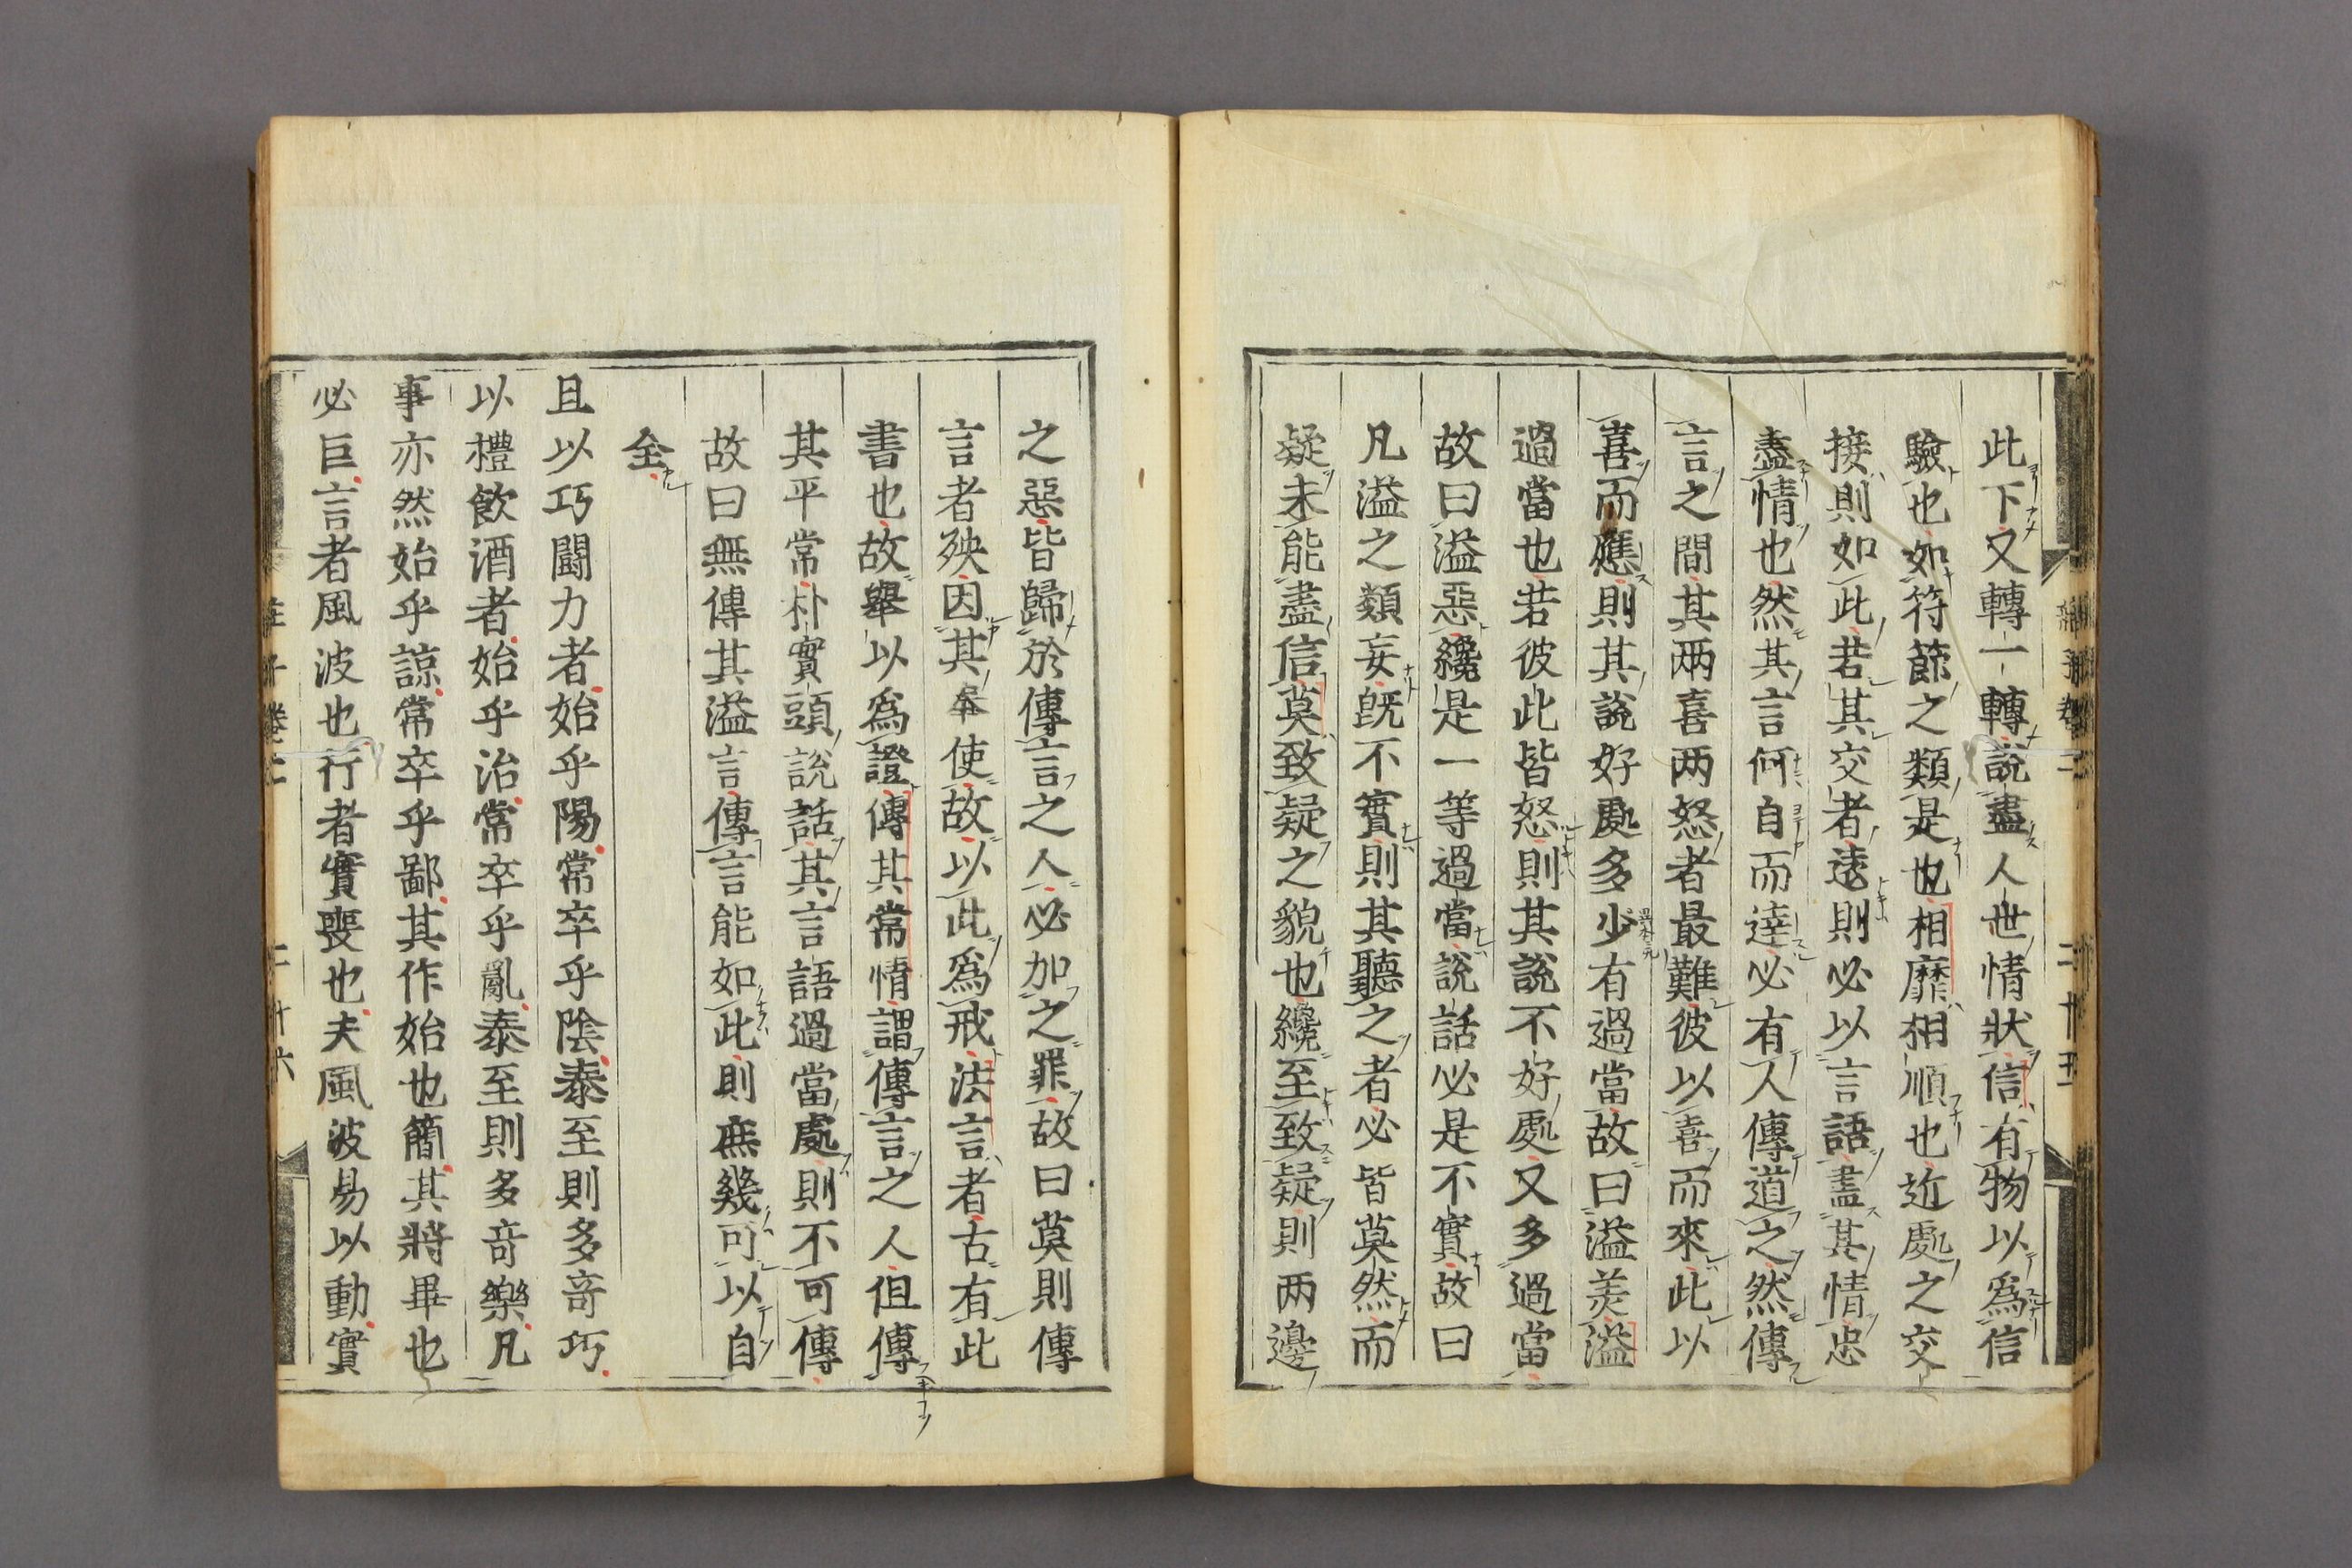 此下又轉一轉說盡人世情狀信有物以爲信
驗也如符節之類是也相靡相順也近處之交
接則如此若其交者遠則必以言語盡其情忠
盡情也然其言何自而達必有人傳道之然傳
言之間其兩喜两怒者最難彼以喜而來此以
喜而應則其說好處多少有過當故曰溢美溢
過當也若彼此皆怒則其說不好處又多過當
故曰溢惡纔是一等過當說話必是不實故曰
凡溢之類妄既不實則其聽之者必皆莫然而
疑未能盡信莫致疑之貌也纔至致疑則两邊
之惡皆歸於傳言之人必加之罪故曰莫則傳
言者殃因其奉使故以此爲戒法言者古有此
書也故舉以爲證傳其常情謂傳言之人但傳
其平常朴實頭說話其言語過當處則不可傳
故曰無傳其溢言傳言能如此則庶幾可以自
全
且以巧鬪力者始乎陽常卒乎陰泰至則多竒巧
以禮飲酒者始乎治常卒乎亂泰至則多竒樂凡
事亦然始乎諒常卒乎鄙其作始也簡其將畢也
必巨言者風波也行者實喪也夫風波易以動實
莊子卷二 二十六